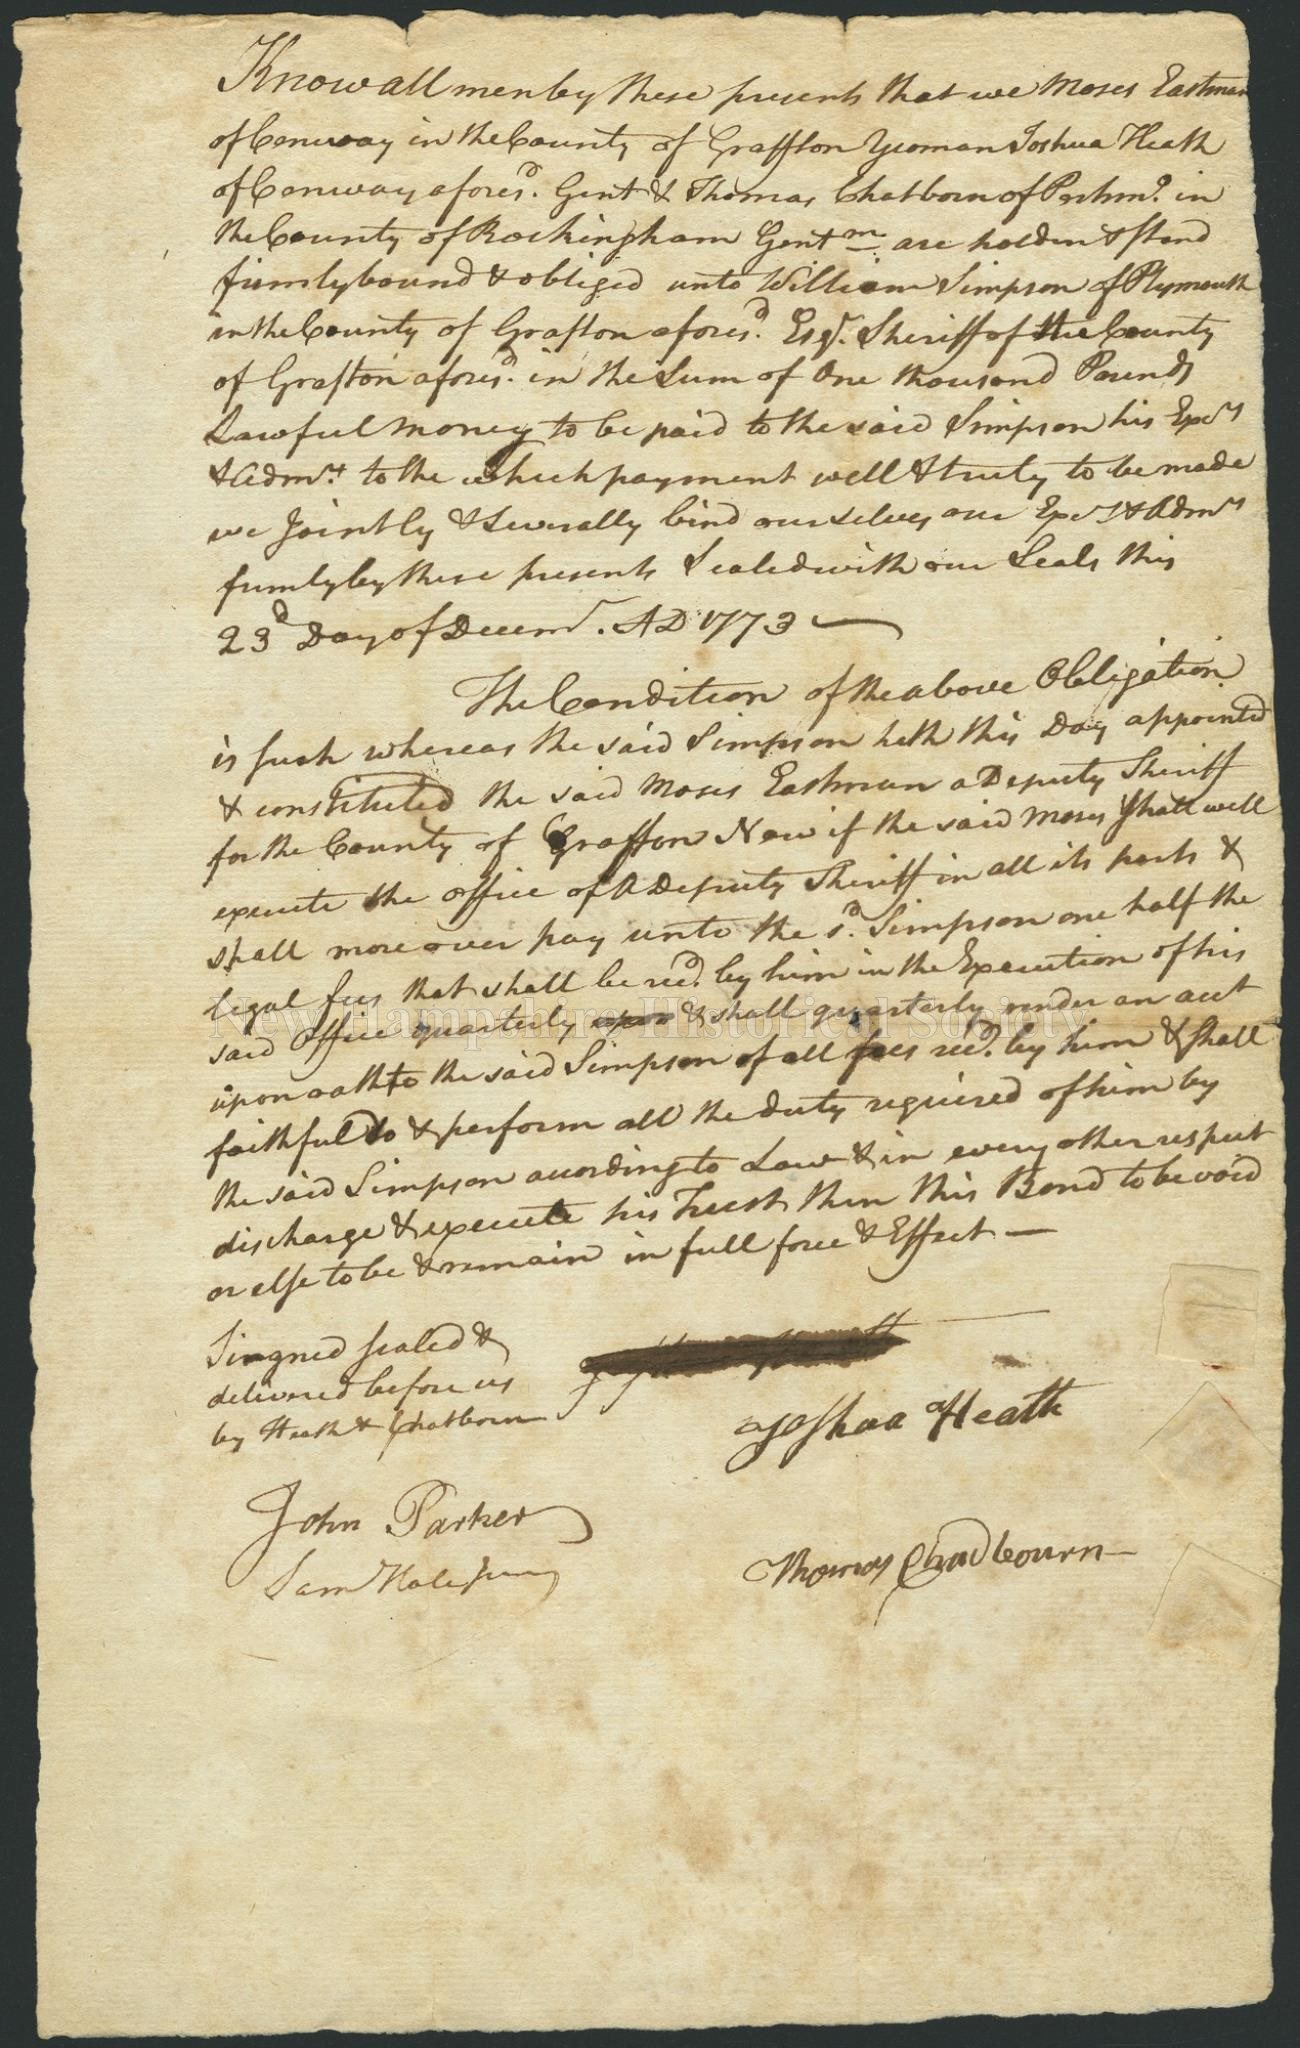 Know all men by these presents that we Moses Eastman
of Conway in the County of Graffton Yeoman Joshua Heath
of Conway afores.d Gent & Thomas Chatborn of Portsm.o in
the County of Rockingham Gentm are holden & stand
firmly bound & obliged unto William Simpson of Plymouth
in the County of Grafton afores.d Esq.r Sheriff of the County
of Grafton afores.d in the Sum of One thousand Pounds
Lawful money to be paid to the said Simpson his Exec.rs
& Adm.rs to the which payment well & truly to be made
we Jointly & Severally bind ourselves our Exec.rs & Adm.rs
firmly by these presents Sealed with our Seals this
23d Day of Decem.r AD 1773
The Condition of the above Obligation
is such whereas the said Simpson hath this Day appointed
& constituted the said Moses Eastman a Deputy Sheriff
for the County of Graffton Now if the said Moses shall well
execute the office of A Deputy Sheriff in all its parts &
shall moreover pay unto the s.d Simpson one half the
legal fees that shall be rec.d by him in the Execution of his
said Office quarterly upon & shall quarterly render an acct
upon oath to the said Simpson of all fees rec.d by him & shall
faithful do & perform all the duty required of him by
the said Simpson according to Law & in every other respect
discharge & execute his Trust then this Bond to be void
or else to be & remain in full force & Effect —
Singned sealed &
delivered before us
by Heath & Chatborn
Joshua Heath
John Parker
Sam Hale
Thomas Chadbourn
New Hampshire Historical Society